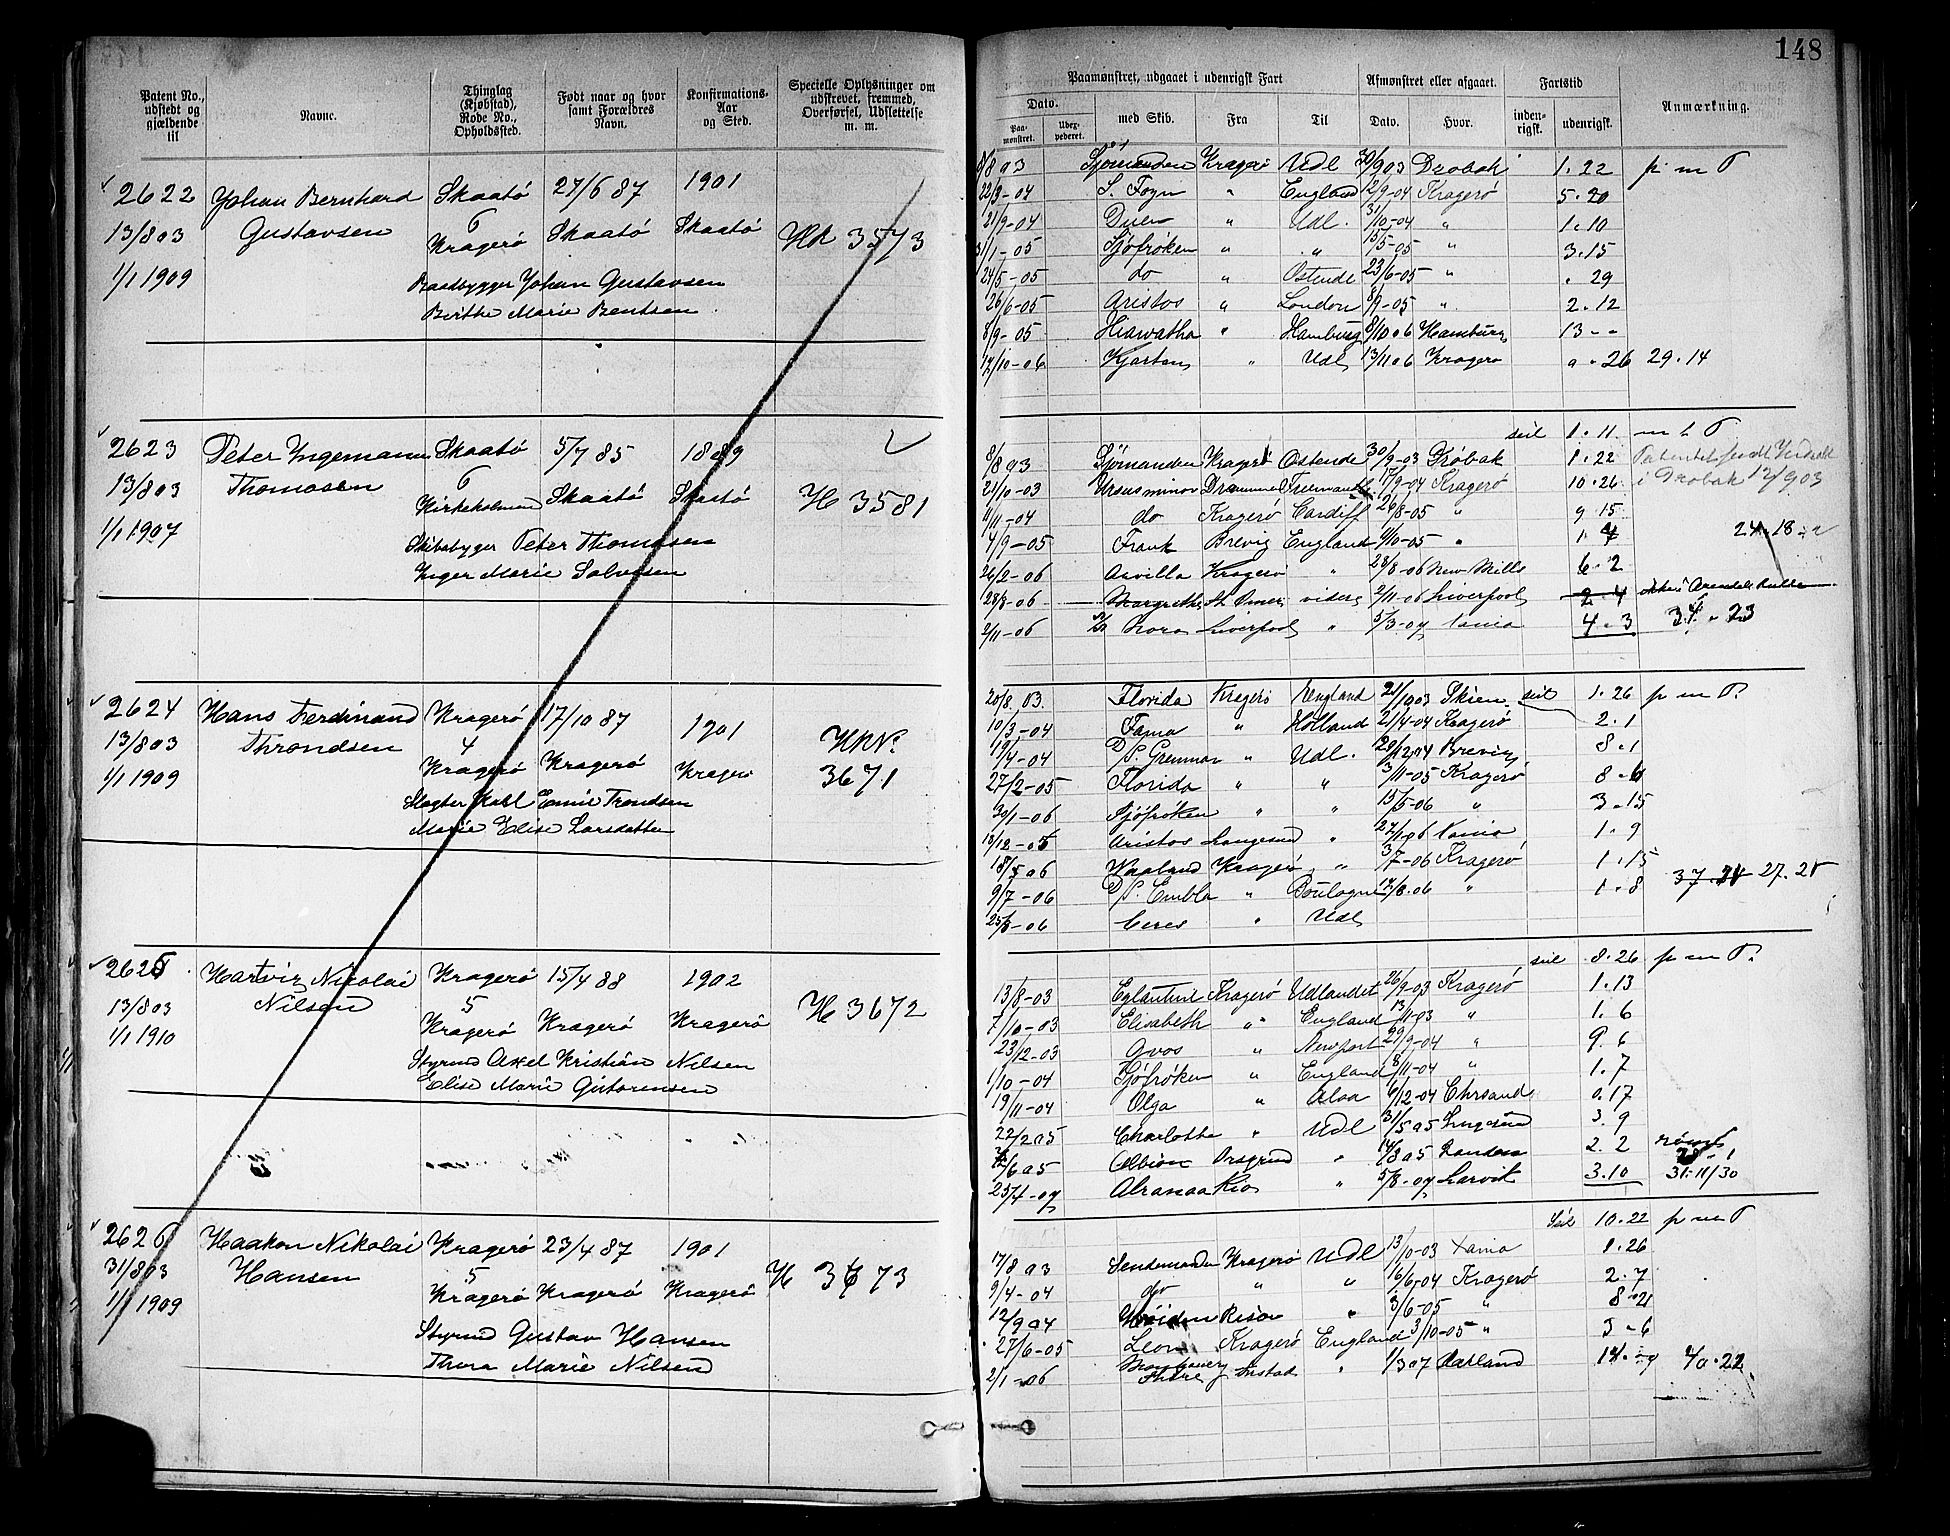 148
Patent No., udstedt og gjældende til
Navne.
Thinglag (Kjøbstad), Rode No., Opholdssted.
Født naar og hvor samt Forældres Navn.
Konfirmations-Aar og Sted.
Specielle Oplysninger om udskrevet, fremmed, Overførsel, Udslettelse m. m.
Paamønstret, udgaaet i udenrigsk Fart
Afmønstret eller afgaaet.
Fartstid
Anmærkning.
Dato.
Paamønstret.
Udexpederet.
med Skib.
Fra
Til
Dato.
Hvor.
indenrigsk.
udenrigsk.
2622 Johan Bernhard Skaatö 27/6 87 1901
13/8 03 Gustavsen 6 Skaatö Skaatö HR 3573
1/1 1909 Kragerö
Baadbygger Johan Gustavsen
Birthe Marie Bentsen
Sjömanden Kragerö Udl 30/9 03 Dröbak 1.22 p m P
22/3-04 S. Foyn " England 12/9-04 Kragerö 5.20
21/9-04 " Udl. 31/10-04 " 1.10
3/1-05 Sjöfröken " " 15/5-05 " 3.15
24/5-05 do " Ostende 23/6-05 " . 29
26/6-05 Aristos " London 8/9-05 " 2.12
8/9-05 Hiawatha " Hamburg 8/10 06 Hamburg 13 - -
17/10-06 Kjartan " Udl 13/11 06 Kragerö 0.26 29.14
2623 Peter Ingemann Skaatö 5/7 85 1889
13/8 03 Thomasen 6 Skaatö Skaatö H 3581
1/1 1907 Kirkeholmen
Skibsbyger Peter Thomasen
Inger Marie Salvesen
seil 1.11. m t P
8/8 03 Sjömanden Kragerö Ostende 30/9-03 Dröbak 1.22
i Dröbak 12/9 03
21/10-03 Ursus minor 17/9-04 Kragerö 10.26
11/11-04 do Kragerö Cardiff 26/8-05 " 9 15
4/9-05 Frank Brevig England 9/10-05 " 1.4 24.18
26/2-06 Asvilla Kragerö " 28/8-06 New Mills 6.2
28/8-06 Margrethe videre 2/11-06 Liverpool 2.4
2/11-06 Liverpool " 5/3-07 4.3 34.23
2624 Hans Ferdinand Kragerö 17/10 87 1901 HR No.
13/8 03 Throndsen 4 Kragerö Kragerö 3671
1/1 1909 Kragerö
Slagter Karl Emil Trondsen
Marie Elise Larsdatter
20/8 03 Florida Kragerö England 21/10 03 Skien seil 1.26 p m P.
10/3-04 Fama " Holland 21/4-04 Kragerö 2.1
19/4-04 D/S. Grenmar " Udl. 20/12 04 Brevig 8.1
27/2-05 Florida " " 3/11-05 Kragerö 8.6
30/1-06 Sjöfröken " " 15/5-06 " 3.15
13/12-05 Aristos Langesund " 22/1 06 1.9
18/5 06 Vaaland Kragerö " 3/7-06 Kragerö 1.15
9/7-06 D/S. Embla " Boulogne 17/8.06 " 1.8 37.21 27.21
25/8-06 Ceres " Udl
2625 Hartvig Nikolai Kragerö 15/4 88 1902
13/8 03 Nilsen 5 H 3672
1/1 1910 Kragerö Kragerö Kragerö
Styrmd Axel Kristian Nilsen
Elise Marie Gutormsen
seil 8.26 p m P.
13/8-03 Eglantine Kragerö Udlandet 26/9-03 Kragerö 1.13
7/10-03 Elisabeth " England 13/11-03 " 1.6
23/12-03 " Newport 29/9-04 " 9.6
1/10-04 Sjöfröken " England 8/11-04 " 1.7
19/11-04 Olga " Aloa 6/12-04 Chrsand 0.17
22/2 05 Charlotte " Udl 31/5 05 Langesund 3.9
/6 05 Albion Porsgrund " 14/8 05 London 2.2
25/4-07 Rio " 5/8-07 Larvik 3.10 31.11/30
2626 Haakon Nikolai Kragerö 23/4 87 1901
31/8 03 Hansen 5 H 3673
1/1 1909 Kragerö Kragerö Kragerö
Styrmd Gustav Hansen
Thora Marie Nilsen
Seil 10.22 p m P
17/8 03 Söndermanden Kragerö Udl 13/10-03 1.26
9/4-04 do " " 16/6-04 Kragerö 2.7
12/9 04 Risör " 3/6-05 " 8.21
27/6-05 Leon Kragerö England 3/10-05 " 3-6
2/1-06 " 1/3 07 14. 40.22